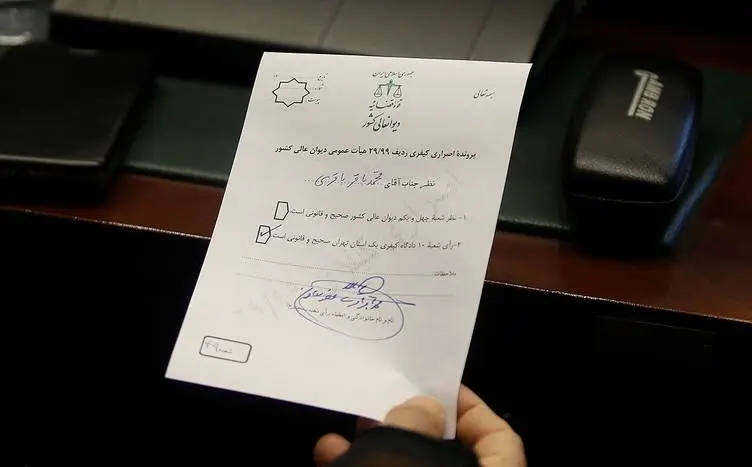 جمهوری اسلامی ایران
قوه قضائیه
دیوانعالی کشور
بسمه تعالی
تاریخ
شماره
پیوست
پرونده اصراری کیفری ردیف ۲۹/۹۹ هیأت عمومی دیوان عالی کشور
نظر جناب آقای محمد باقر باقری
۱- نظر شعبه چهل و یکم دیوان عالی کشور صحیح و قانونی است.
۲- رأی شعبه ۱۰ دادگاه کیفری یک استان تهران صحیح و قانونی است.
ملاحظات
نام و نام خانوادگی و امضاء رأی دهنده
شعبه ۴۹